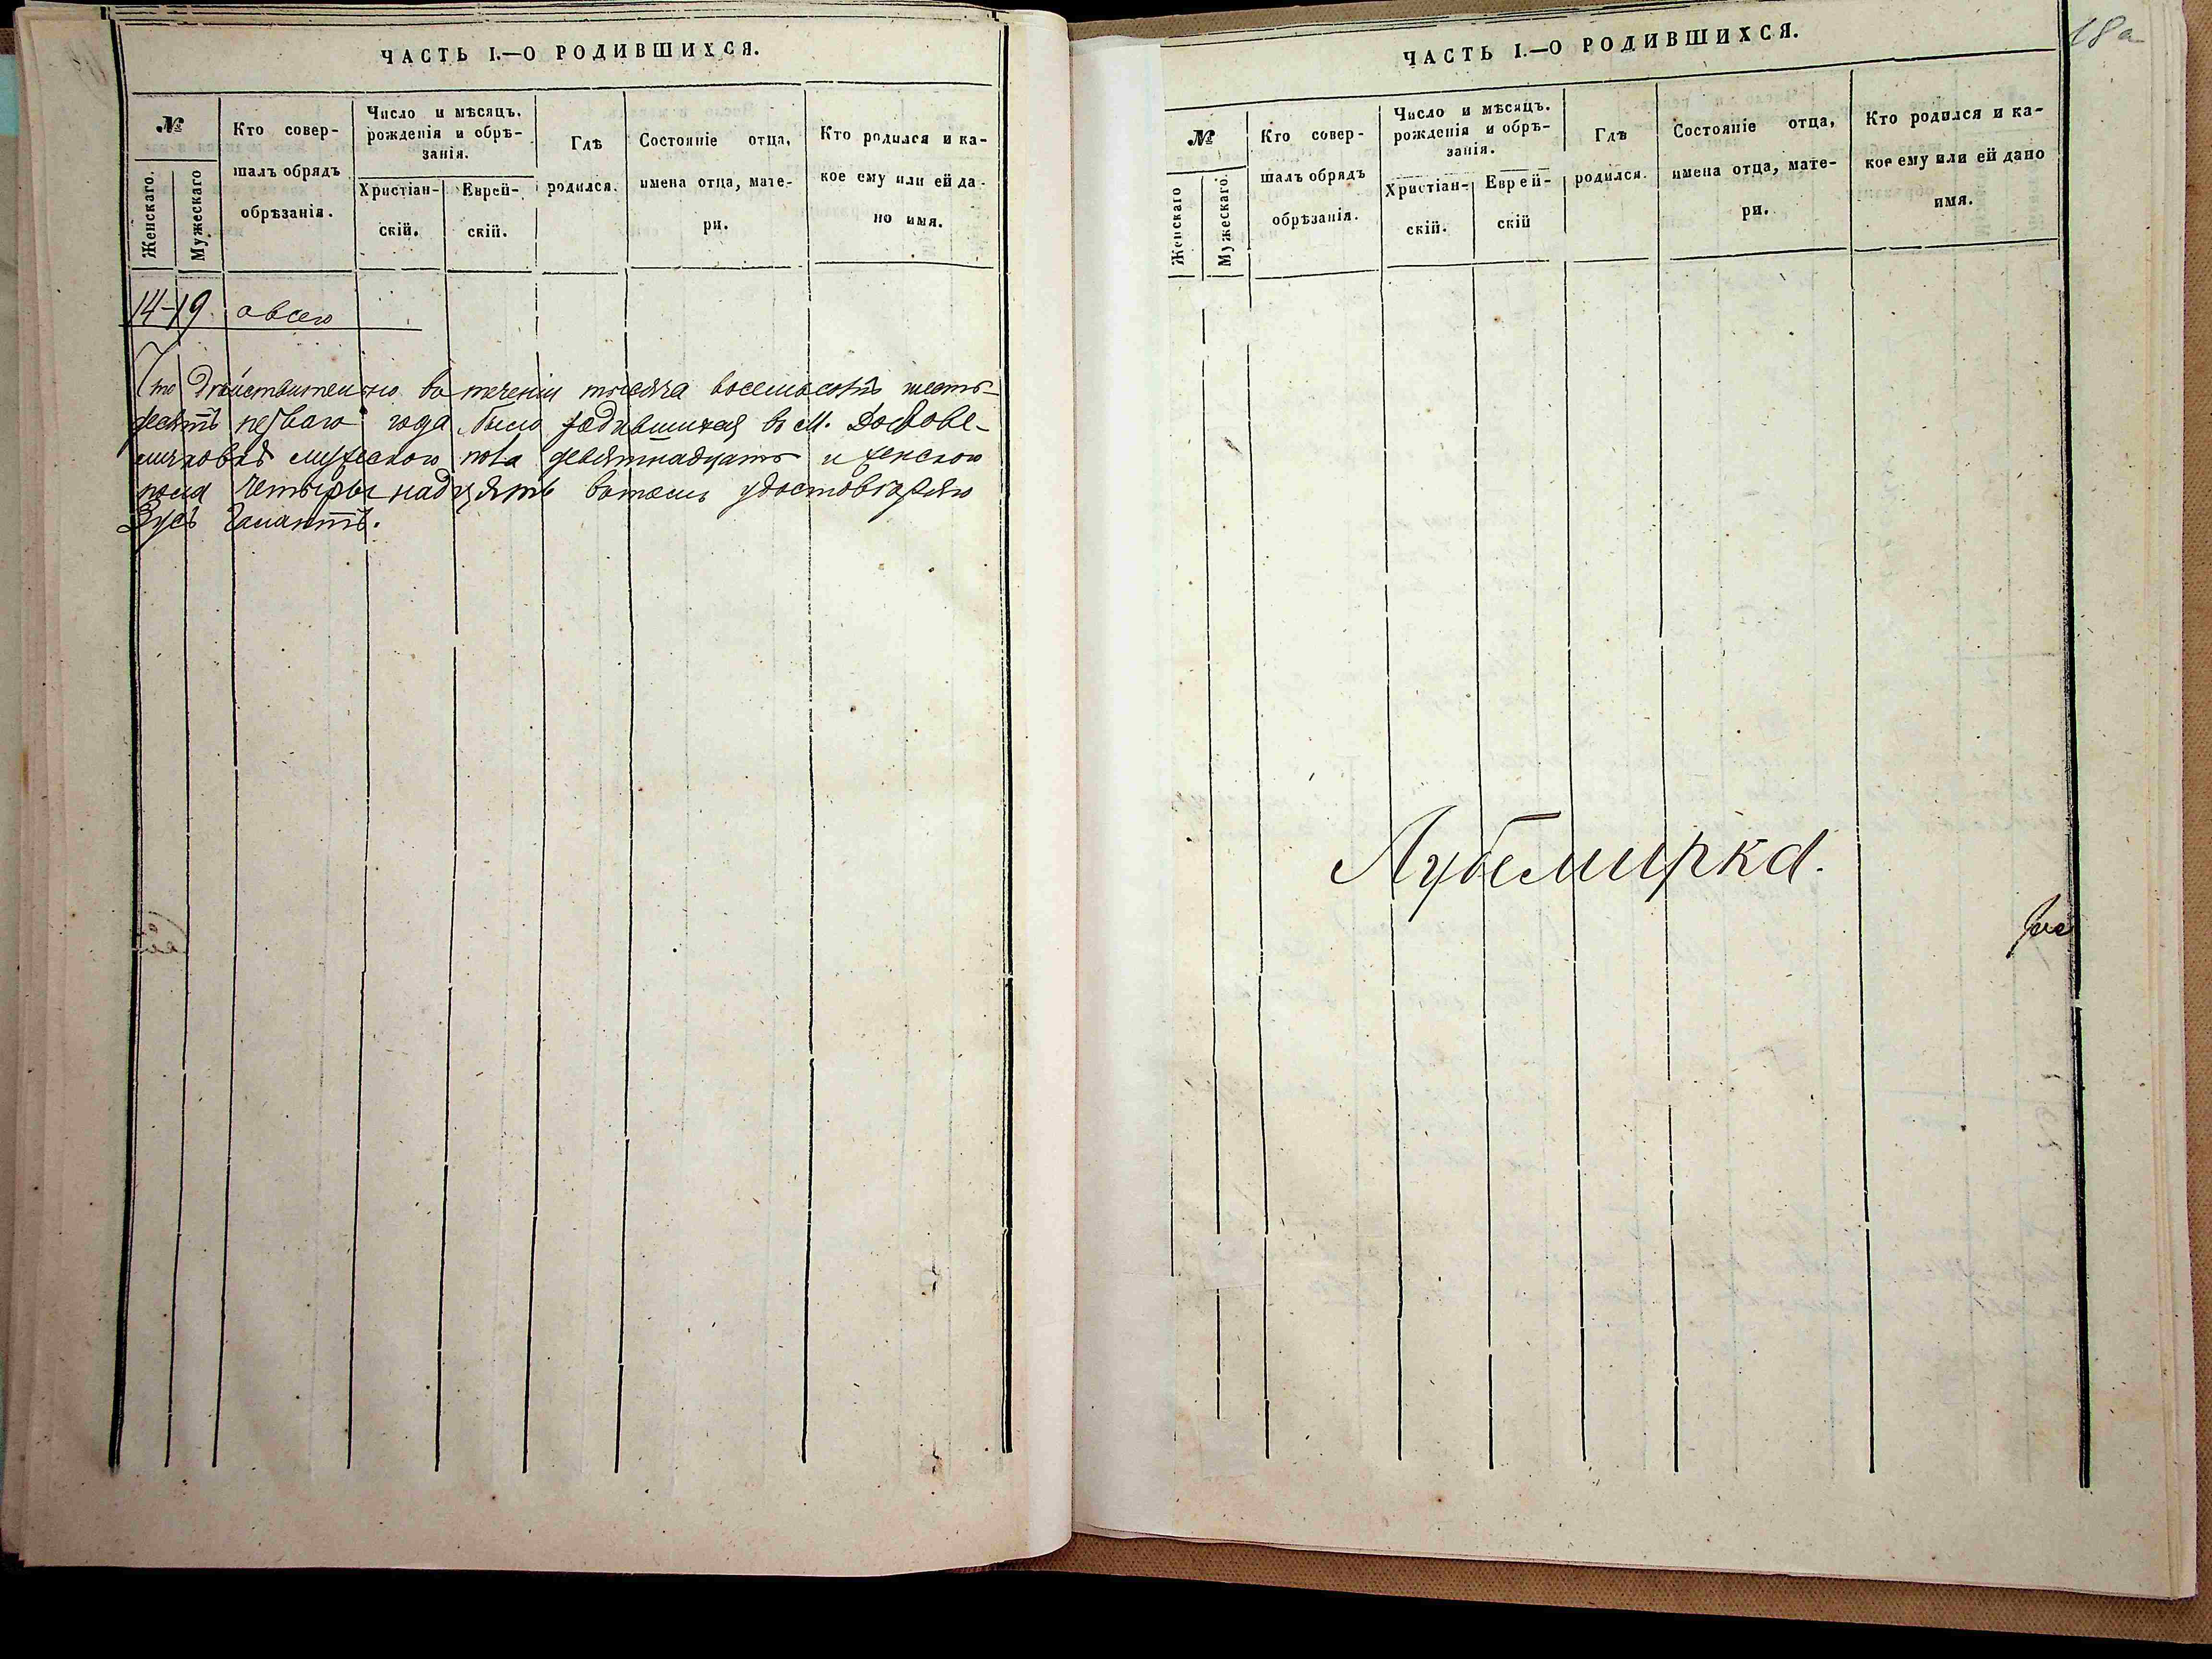 ЧАСТЬ I.—О РОДИВШИХСЯ.
№
Женскаго.
Мужескаго
Кто совер-
шалъ обрядъ
обрѣзанія.
Число и мѣсяцъ.
рожденія и обрѣ-
занія.
Христіан-
скій.
Еврей-
скій.
Гдѣ
родился.
Состояніе отца,
имена отца, мате-
ри.
Кто родился и ка-
кое ему или ей да-
но имя.
14-19. овсего
Что Дѣйствительно во теченіи тысяча восемьсотъ шесть-
десятъ перваго года было родившихся во М. Доброве-
личковкѣ мужескаго пола девятнадцать и женского
пола Четырынадцять вотомъ удостовѣряю
Зусъ
ЧАСТЬ I.—О РОДИВШИХСЯ.
18а
№
Женскаго
Мужескаго.
Кто совер-
шалъ обрядъ
обрѣзанія.
Число и мѣсяцъ.
рожденія и обрѣ-
занія.
Христіан-
скій.
Еврей-
скій
Гдѣ
родился.
Состояніе отца,
имена отца, мате-
ри.
Кто родился и ка-
кое ему или ей дано
имя.
Лубемирка.